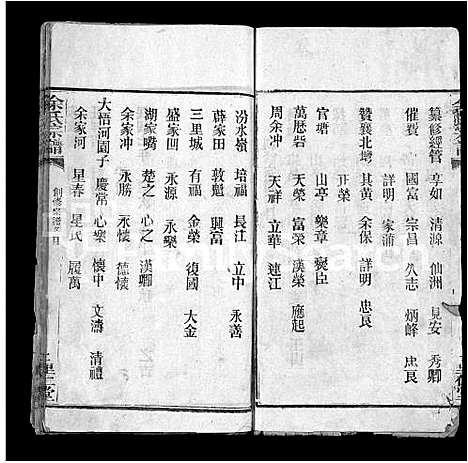 纂修經管 享如 清源 仙洲 見安 秀卿
催費 國富 宗昌 久志 炳峰 忠良
詳明 家浦
贊襄北塆 其黃 余保 詳明 忠良
開榮
官塘 山亭 樂章 襃臣
萬歷岩 天榮 富榮 漢榮 應起
周余冲 天祥 立華 連江
汾水嶺 培福 長江 立中 永善
薛家田 敦魁 興富
三里城 有福 金榮 復國 大金
盛家凹 永源 永樂
湖家嘴 楚之 心一 漢卿
余家冲 永勝 永懷 德懷
大悟河園子 慶常 心樂 懷中 文濤 清禮
余家河 星春 星氏 履萬
余氏宗譜
創修宗譜